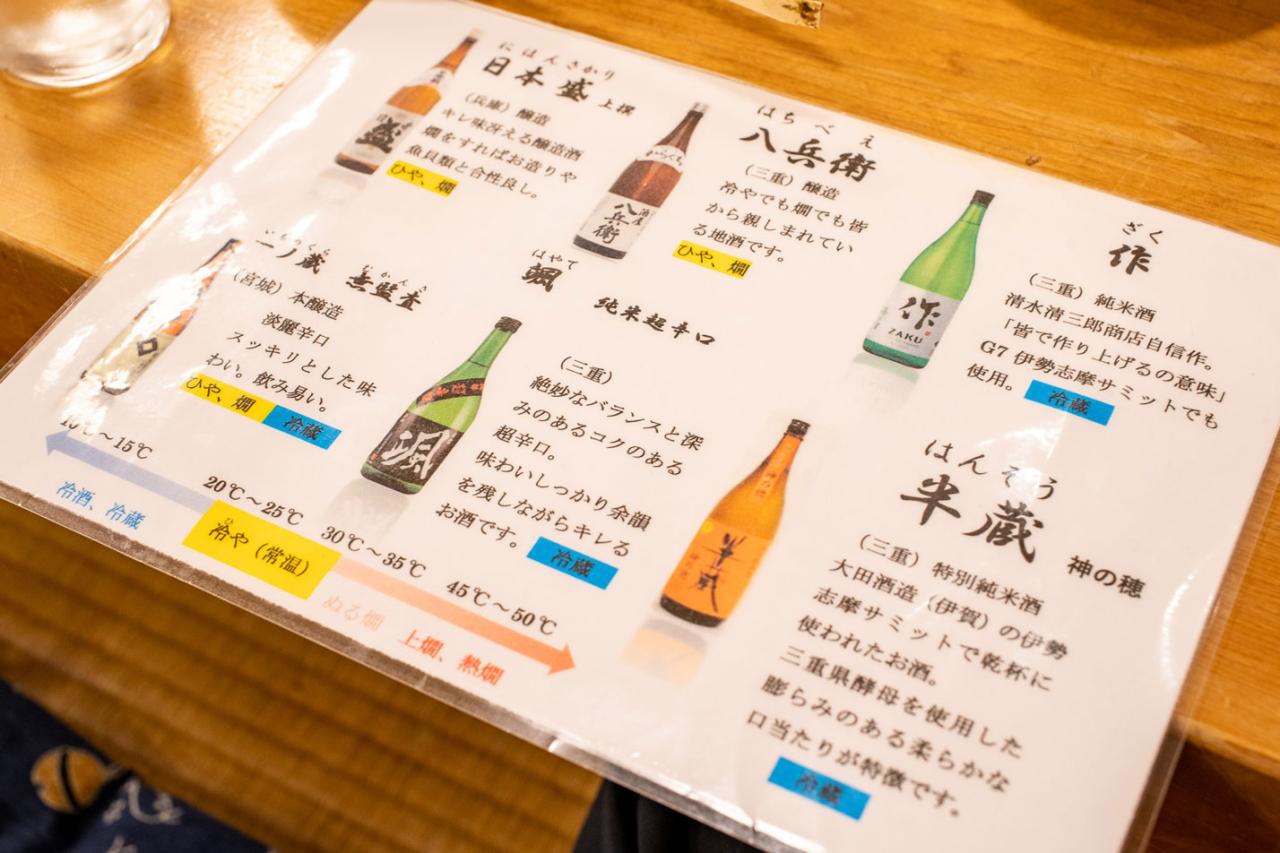 にほんさかり
日本盛 上撰
(兵庫) 醸造
キレ味冴える醸造酒
燗をすればお造りや
魚貝類と合性良し。
ひや、燗
盛
はちべえ
八兵衛
(三重) 醸造
冷やでも燗でも皆
から親しまれてい
る地酒です。
ひや、燗
からくち
八兵衛
ざく
作
(三重) 純米酒
清水清三郎商店自信作。
「皆で作り上げるの意味」
G7 伊勢志摩サミットでも
使用。
冷蔵
作
ZAKU
一ノ蔵 無監査
(宮城) 本醸造
淡麗辛口
スッキリとした味
わい。飲み易い。
ひや、燗
冷蔵
はやて
颯 純米超辛口
(三重)
絶妙なバランスと深
みのあるコクのある
超辛口。
味わいしっかり余韻
を残しながらキレる
お酒です。
冷蔵
颯
はんぞう
半蔵 神の穂
(三重) 特別純米酒
大田酒造(伊賀)の伊勢
志摩サミットで乾杯に
使われたお酒。
三重県酵母を使用した
膨らみのある柔らかな
口当たりが特徴です。
冷蔵
半蔵
10℃～15℃
冷酒、冷蔵
20℃～25℃
ひ
冷や(常温)
30℃～35℃
ぬる燗
45℃～50℃
上燗、熱燗